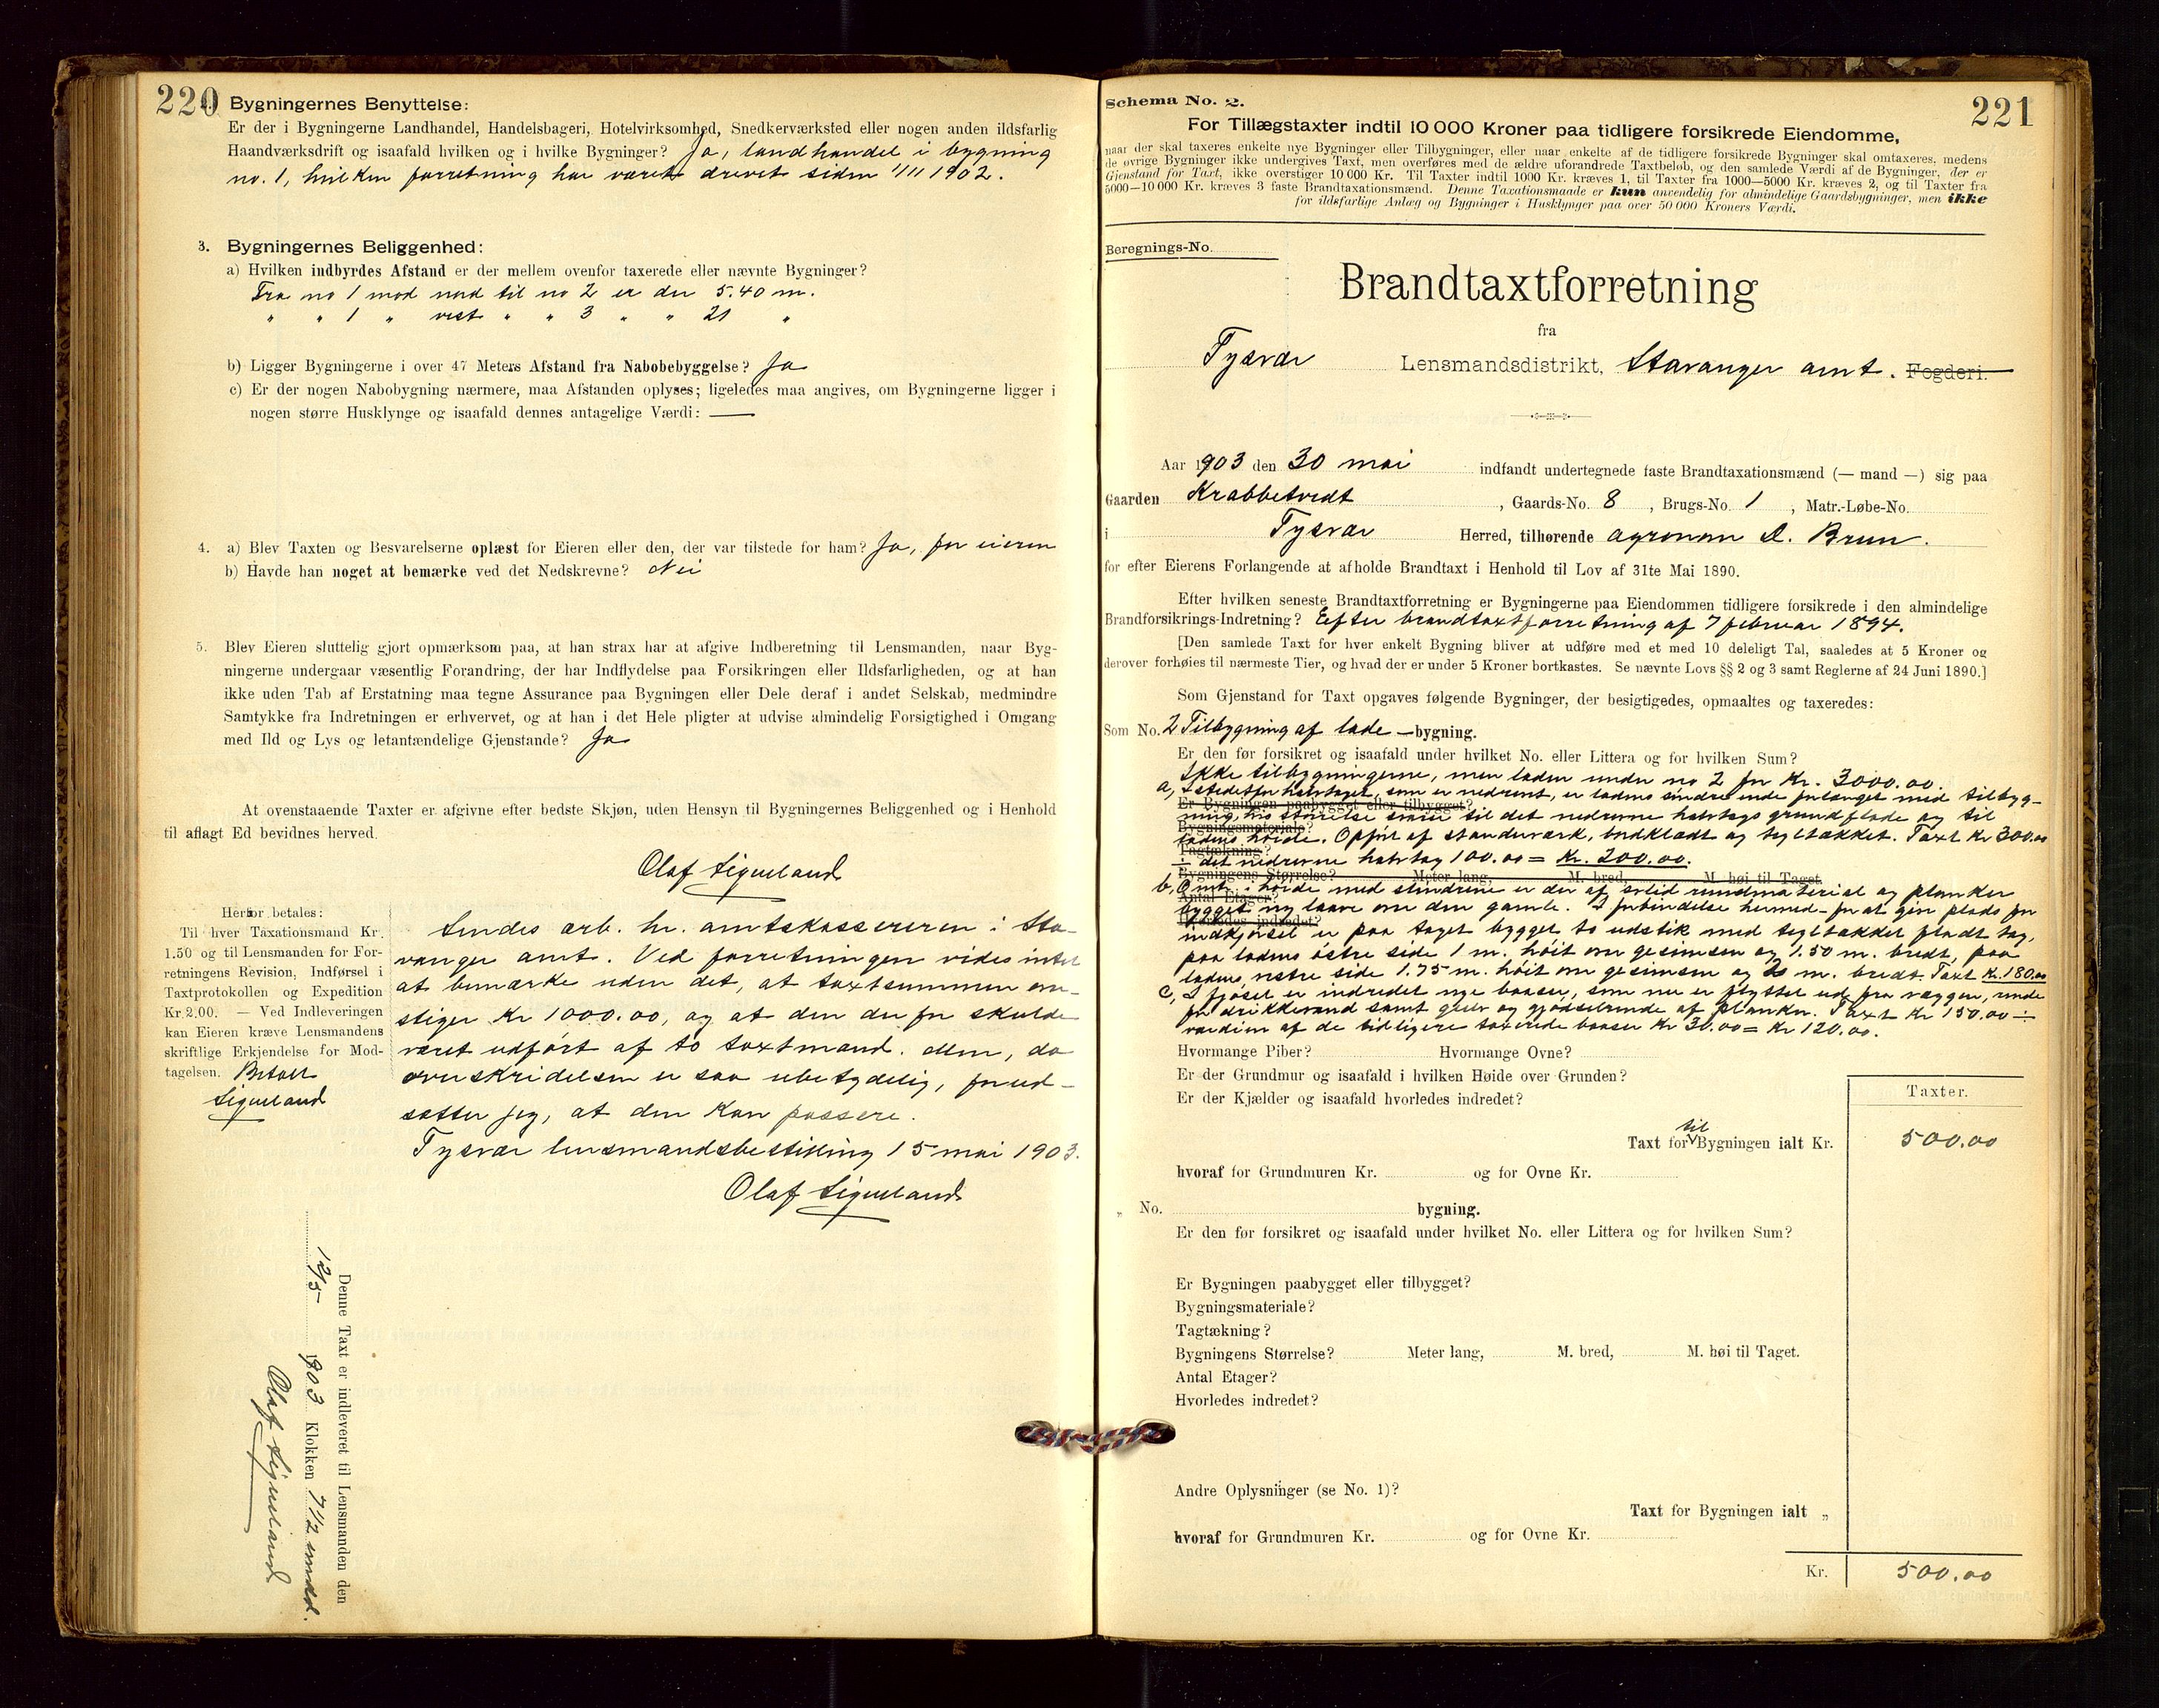 220
Bygningernes Benyttelse:
Er der i Bygningerne Landhandel, Handelsbageri, Hotelvirksomhed, Snedkerværksted eller nogen anden ildsfarlig
Haandværksdrift og isaafald hvilken og i hvilke Bygninger? Ja, landhandel i bygning
no. 1, hvilken forretning har været drevet siden 1/11 1902.
3. Bygningernes Beliggenhed:
a) Hvilken indbyrdes Afstand er der mellem ovenfor taxerede eller nævnte Bygninger?
Fra no 1 mod nord til no 2 er der 5.40 m.
" " 1 " vest " " 3 " " 21 "
b) Ligger Bygningerne i over 47 Meters Afstand fra Nabobebyggelse? Ja
c) Er der nogen Nabobygning nærmere, maa Afstanden oplyses; ligeledes maa angives, om Bygningerne ligger i
nogen større Husklynge og isaafald dennes antagelige Værdi: —
4. a) Blev Taxten og Besvarelserne oplæst for Eieren eller den, der var tilstede for ham? Ja, for eieren
b) Havde han noget at bemærke ved det Nedskrevne? Nei
5. Blev Eieren sluttelig gjort opmærksom paa, at han strax har at afgive Indberetning til Lensmanden, naar Byg-
ningerne undergaar væsentlig Forandring, der har Indflydelse paa Forsikringen eller Ildsfarligheden, og at han
ikke uden Tab af Erstatning maa tegne Assurance paa Bygningen eller Dele deraf i andet Selskab, medmindre
Samtykke fra Indretningen er erhvervet, og at han i det Hele pligter at udvise almindelig Forsigtighed i Omgang
med Ild og Lys og letantændelige Gjenstande? Ja
At ovenstaaende Taxter er afgivne efter bedste Skjøn, uden Hensyn til Bygningernes Beliggenhed og i Henhold
til aflagt Ed bevidnes herved.
Olaf Sigueland
Herfor betales:
Til hver Taxationsmand Kr.
1.50 og til Lensmanden for For-
retningens Revision, Indførsel i
Taxtprotokollen og Expedition
Kr. 2.00. — Ved Indleveringen
kan Eieren kræve Lensmandens
skriftlige Erkjendelse for Mod-
tagelsen. Betalt
Sigueland
Sendes ærb. hr. amtskassereren i Sta-
vanger amt. Ved forretningen vides intet
at bemærke uden det, at taxtsummen over-
stiger Kr 1000.00, og at den derfor skulde
været udført af to taxtmænd. Men, da
overskridelsen er saa ubetydelig, forud-
sætter jeg, at den kan passere.
Tysvær lensmandsbestilling 15 mai 1903.
Olaf Sigueland
Denne Taxt er indleveret til Lensmanden den
12/5 1903 Klokken 7 1/2 emdd.
Olaf Sigueland
221
Schema No. 2.
For Tillægstaxter indtil 10 000 Kroner paa tidligere forsikrede Eiendomme,
naar der skal taxeres enkelte nye Bygninger eller Tilbygninger, eller naar enkelte af de tidligere forsikrede Bygninger skal omtaxeres, medens
de øvrige Bygninger ikke undergives Taxt, men overføres med de ældre uforandrede Taxtbeløb, og den samlede Værdi af de Bygninger, der er
Gjenstand for Taxt, ikke overstiger 10 000 Kr. Til Taxter indtil 1000 Kr. kræves 1, til Taxter fra 1000—5000 Kr. kræves 2, og til Taxter fra
5000—10 000 Kr. kræves 3 faste Brandtaxationsmænd. Denne Taxationsmaade er kun anvendelig for almindelige Gaardsbygninger, men ikke
for ildsfarlige Anlæg og Bygninger i Husklynger paa over 50 000 Kroners Værdi.
Beregnings-No.
Brandtaxtforretning
fra
Tysvær Lensmandsdistrikt, Stavanger amt. Fogderi.
Aar 1903 den 30 mai indfandt undertegnede faste Brandtaxationsmænd (— mand —) sig paa
Gaarden Krabbetvedt, Gaards-No. 8, Brugs-No. 1, Matr.-Løbe-No.
i Tysvær Herred, tilhørende agronom A. Brun.
for efter Eierens Forlangende at afholde Brandtaxt i Henhold til Lov af 31te Mai 1890.
Efter hvilken seneste Brandtaxtforretning er Bygningerne paa Eiendommen tidligere forsikrede i den almindelige
Brandforsikrings-Indretning? Efter brandtaxtforretning af 7 februar 1894.
[Den samlede Taxt for hver enkelt Bygning bliver at udføre med et med 10 deleligt Tal, saaledes at 5 Kroner og
derover forhøies til nærmeste Tier, og hvad der er under 5 Kroner bortkastes. Se nævnte Lovs §§ 2 og 3 samt Reglerne af 24 Juni 1890.]
Som Gjenstand for Taxt opgaves følgende Bygninger, der besigtigedes, opmaaltes og taxeredes:
Som No. 2 Tilbygning af lade — bygning.
Er den før forsikret og isaafald under hvilket No. eller Littera og for hvilken Sum?
Ikke tilbygningerne, men laden under no 2 for Kr. 3000.00.
a, Istedetfor halvtaget, som er nedrevet, er ladens søndre ende forlænget med tilbyg-
Er Bygningen paabygget eller tilbygget?
ning, hvis størrelse svarer til det nedrevne halvtags grundflade og til
Bygningsmateriale?
ladens høide. Opført af standerværk, bordklædt og tegltækket. Taxt Kr 300.00
Tagtækning?
÷ det nedrevne halvtag 100.00 = Kr. 200.00.
Bygningens Størrelse? Meter lang, M. bred, M. høi til Taget.
b, Omtr. i høide med stenderne er der af solid rundmateriel og planker
Antal Etager?
bygget ny laave over den gamle. I forbindelse hermed – for at give plads for
Hvorledes indredet?
indkjørsel er paa taget bygget to udstik med tegltækket fladt tag,
paa ladens østre side 1 m. høit over gesimsen og 1.50 m. bredt, paa
ladens vestre side 1.75 m. høit over gesimsen og m. bredt. Taxt Kr. 180.00
c, I fjøset er indredet nye baaser, som nu er flyttet ud fra væggen, rende
for drikkevand samt gulv og gjødselrende af planker. Taxt Kr 150.00 ÷
værdien af de tidligere taxerede baaser Kr 30.00 = Kr 120.00.
Hvormange Piber? Hvormange Ovne?
Er der Grundmur og isaafald i hvilken Høide over Grunden?
Er der Kjælder og isaafald hvorledes indredet?
Taxter.
til
Taxt for Bygningen ialt Kr. 500.00
hvoraf for Grundmuren Kr. og for Ovne Kr.
„ No. bygning.
Er den før forsikret og isaafald under hvilket No. eller Littera og for hvilken Sum?
Er Bygningen paabygget eller tilbygget?
Bygningsmateriale?
Tagtækning?
Bygningens Størrelse? Meter lang, M. bred, M. høi til Taget.
Antal Etager?
Hvorledes indredet?
Andre Oplysninger (se No. 1)?
Taxt for Bygningen ialt „
hvoraf for Grundmuren Kr. og for Ovne Kr.
Kr. 500.00